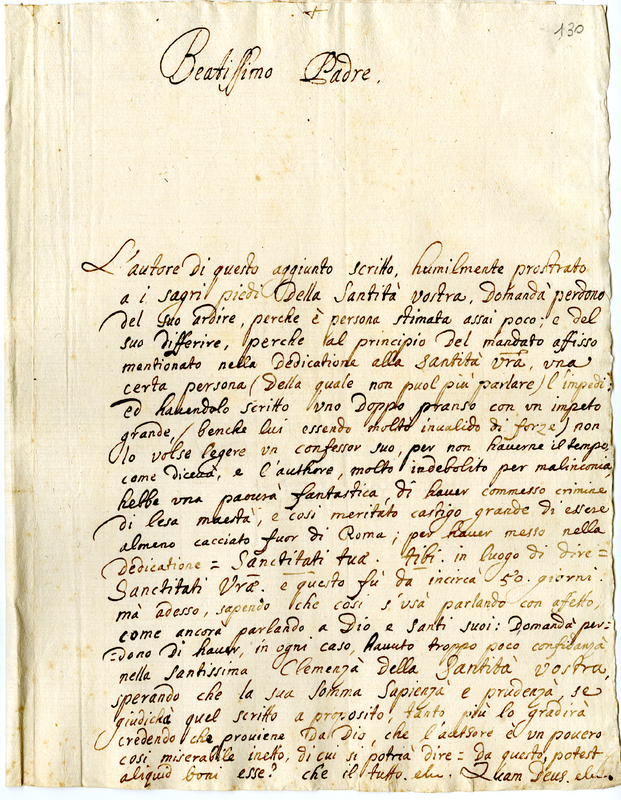 130
Beatissimo Padre.
L'autore di questo aggiunto scritto, humilmente prostrato
a i sagri piedi della Santità vostra, domandà perdono
del suo ardire, perche è persona stimata assai poco; e del
suo differire, perche al principio del mandato affisso
mentionato nella dedicatione alla Santità Vrã, una
certa persona (della quale non puol più parlare) l'impedì
ed havendolo scritto uno doppo pranso con un impeto
grande, (benche lui essendo molto invalido di forze) non
lo volse legere un confessor suo, per non haverne il tempo,
come dicevà, e l'authore, molto indebolito per malinconia,
hebbe una paourà fantastica, di haver commesso crimine
di lesa maestà, e così meritato castigo grande di essere
almeno cacciato fuor di Roma; per haver messo nella
Dedicatione = Sanctitati tuæ tibi. in luogo di dire =
Sanctitati Vræ. e questo fù da incircà 50. giorni.
mà adesso, sapendo che così s'usà parlando con affetto,
come ancorà parlando a Dio e santi suoi: Domandà per=
=dono di haver, in ogni caso, havuto troppo poco confidanzà
nella santissima Clemenzà della Santità vostra,
sperando che la sua somma sapienzà e prudenzà, se
giudichà quel scritto a proposito, tanto più lo gradirà
credendo che proviene da Dio, che l'autsore è un povero
così miserabile inetto, di cui si potrià dire = da questo potest
aliquid boni esse? che il tutto. Quam Deus.